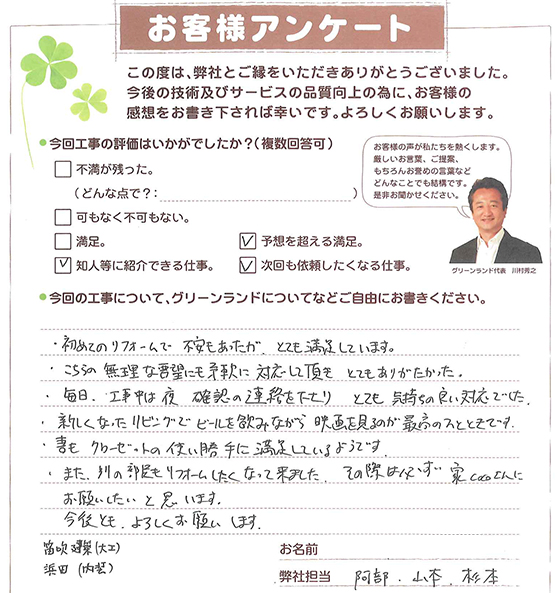 お客様アンケート
この度は、弊社とご縁をいただきありがとうございました。
今後の技術及びサービスの品質向上の為に、お客様の
感想をお書き下されば幸いです。よろしくお願いします。
●今回工事の評価はいかがでしたか？(複数回答可)
不満が残った。
(どんな点で？:                )
可もなく不可もない。
満足。 ☑予想を超える満足。
☑知人等に紹介できる仕事。 ☑次回も依頼したくなる仕事。
お客様の声が私たちを熱くします。
厳しいお言葉、ご提案、
もちろんお誉めの言葉など
どんなことでも結構です。
是非お聞かせください。
グリーンランド代表 川村秀之
●今回の工事について、グリーンランドについてなどご自由にお書きください。
・初めてのリフォームで 不安もあったが、とても満足しています。
・こちらの 無理な要望にも柔軟に 対応して頂き とてもありがたかった。
・毎日、工事中は夜 確認の連絡を下さり とても 気持ちの良い対応でした。
・新しくなったリビングで ビールを飲みながら 映画を見るのが最高のひとときです。
・妻も クローゼットの使い勝手に満足しているようです。
・また、別の部屋もリフォームしたくなって来ました。その際は必ず 家cocoさんに
お願いしたい と思います。
今後とも、よろしくお願いします。
笛吹建築(大工)
浜田(内装)
お名前
弊社担当 阿部、山本、杉本